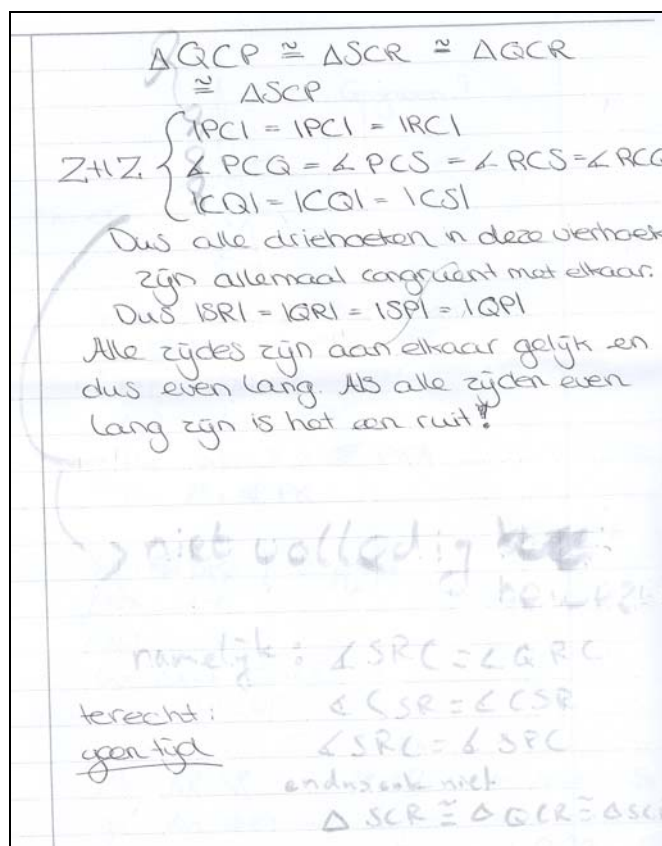 △QCP ≅ △SCR ≅ △QCR
≅ △SCP
ZHZ { |PC| = |PC| = |RC|
∡ PCQ = ∡ PCS = ∡ RCS = ∡ RCQ
|CQ| = |CQ| = |CS|
Dus alle driehoeken in deze vierhoek
zijn allemaal congruent met elkaar.
Dus |SR| = |QR| = |SP| = |QP|
Alle zijdes zijn aan elkaar gelijk en
dus even lang. Als alle zijden even
lang zijn is het een ruit!
niet volledig
namelijk: ∡ SRC = ∡ QRC
terecht: ∡ CSR = ∡ CSR
geen tijd ∡ SRC = ∡ SPC
niet
△ SCR ≅ △ QCR ≅ △SC